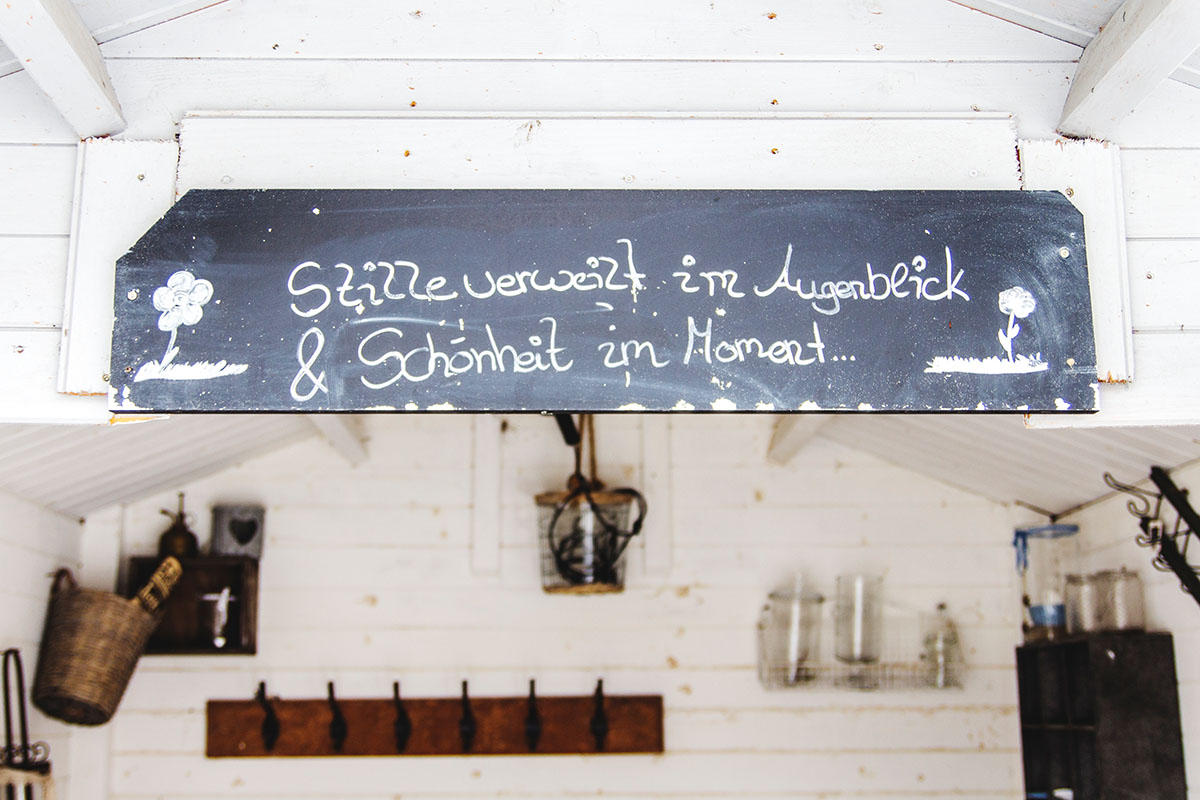 Stille verweilt im Augenblick
& Schönheit im Moment...